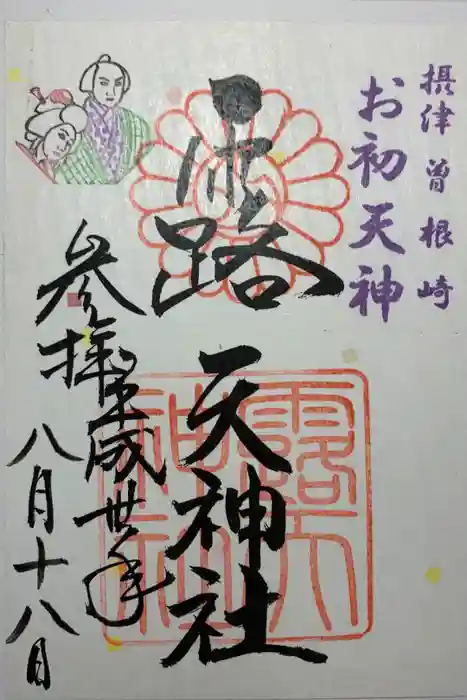 摂津 曽根崎
お初天神
露天神社
参拝
平成卅年
八月十八日